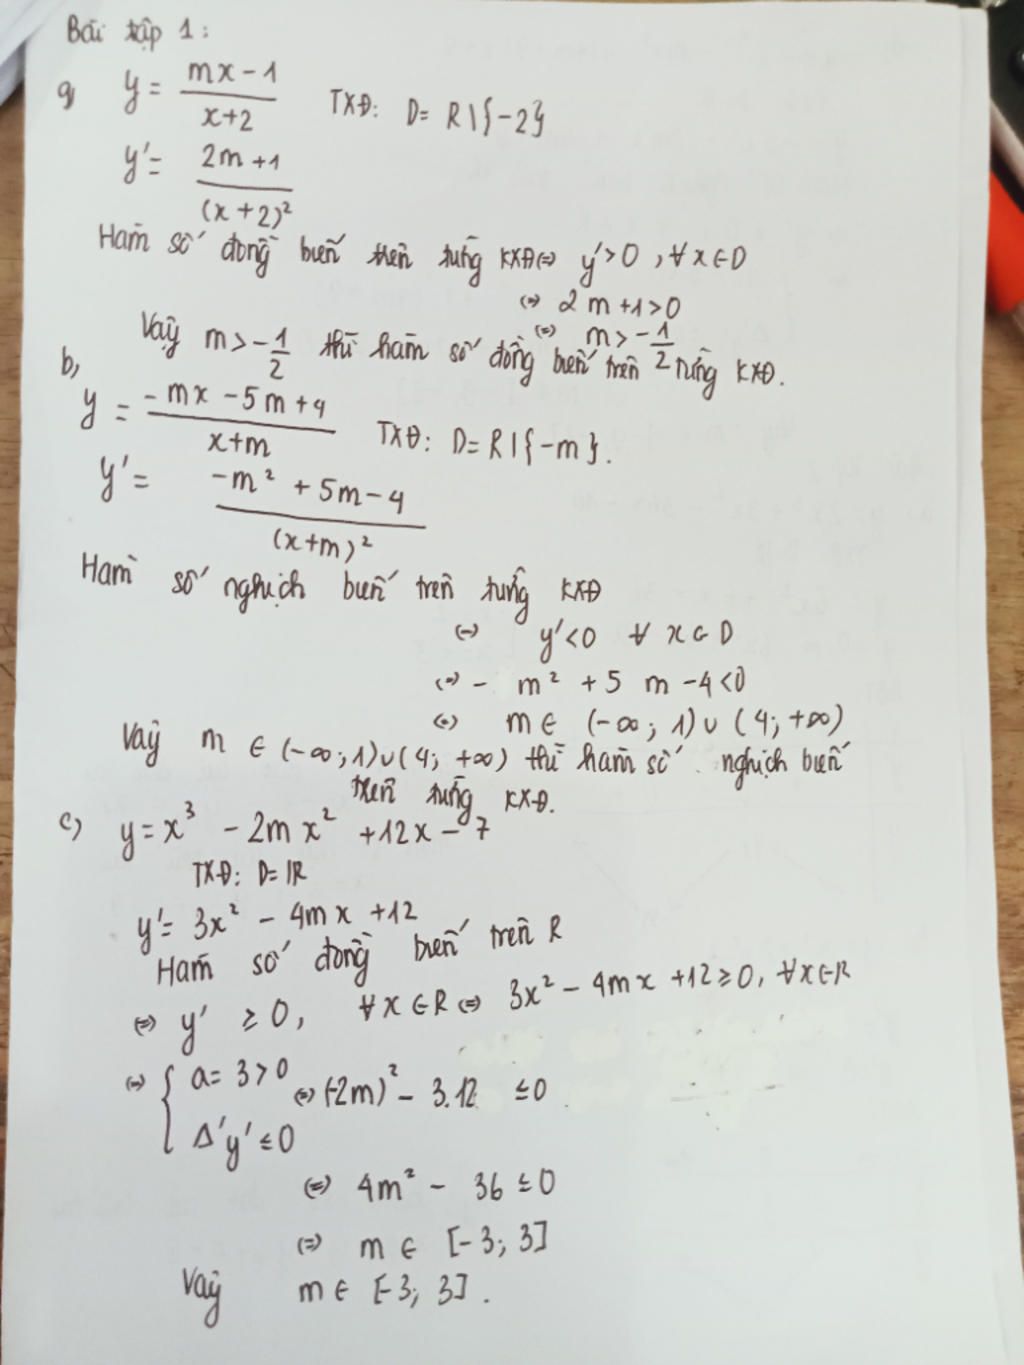 Bài tập 1:
a, y = (mx - 1)/(x+2) TXĐ: D = R \ {-2}
y' = (2m + 1)/(x + 2)²
Hàm số đồng biến trên từng KXĐ ⇔ y' > 0, ∀x ∈ D
⇔ 2m + 1 > 0
⇔ m > -1/2
Vậy m > -1/2 thì hàm số đồng biến trên từng KXĐ.
b,
y = (-mx - 5m + 4)/(x+m) TXĐ: D = R \ {-m}.
y' = (-m² + 5m - 4)/(x+m)²
Hàm số nghịch biến trên từng KXĐ
⇔ y' < 0 ∀ x ∈ D
⇔ - m² + 5m - 4 < 0
⇔ m ∈ (-∞; 1) ∪ (4; +∞)
Vậy m ∈ (-∞; 1) ∪ (4; +∞) thì hàm số nghịch biến
trên từng KXĐ.
c) y = x³ - 2mx² + 12x - 7
TXĐ: D = R
y' = 3x² - 4mx + 12
Hàm số đồng biến trên R
⇔ y' ≥ 0, ∀x ∈ R ⇔ 3x² - 4mx + 12 ≥ 0, ∀x ∈ R
⇔ { a = 3 > 0
Δ'y' ≤ 0 ⇔ (-2m)² - 3.12 ≤ 0
⇔ 4m² - 36 ≤ 0
⇔ m ∈ [-3; 3]
Vậy m ∈ [-3; 3].